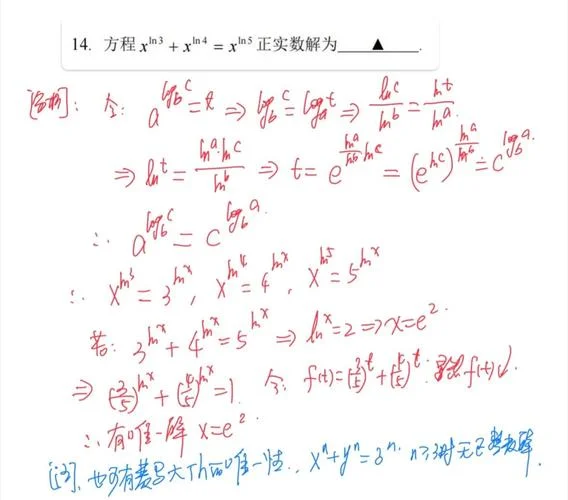 14. 方程 x^{ln3} + x^{ln4} = x^{ln5} 正实数解为____▲____.
[解析]: 令: a^{log_b c} = t ⇒ log_b c = log_a t ⇒ \frac{ln c}{ln b} = \frac{ln t}{ln a}.
⇒ ln t = \frac{ln a · ln c}{ln b} ⇒ t = e^{\frac{ln a}{ln b} ln c} = (e^{ln c})^{\frac{ln a}{ln b}} = c^{log_b a}
∴ a^{log_b c} = c^{log_b a}
∴ x^{ln3} = 3^{ln x}, x^{ln4} = 4^{ln x}, x^{ln5} = 5^{ln x}
若: 3^{ln x} + 4^{ln x} = 5^{ln x} ⇒ ln x = 2 ⇒ x = e^2.
⇒ (\frac{3}{5})^{ln x} + (\frac{4}{5})^{ln x} = 1. 令: f(t) = (\frac{3}{5})^t + (\frac{4}{5})^t. 显然 f(t)↓.
∴ 有唯一解 x = e^2.
[注]. 也可有费马大Th 唯一性., x^n + y^n = 3^n. n≥3时无正整数解.